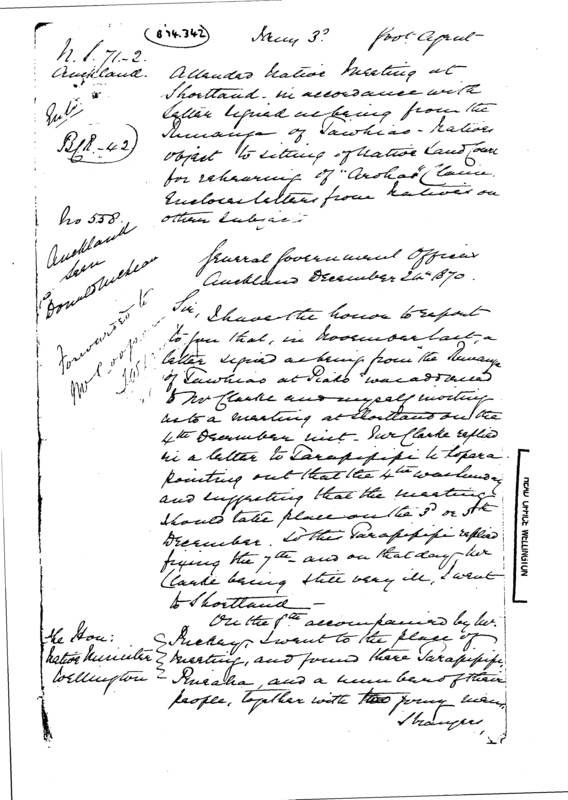 874.342
Jany 3?
Govt Agent
N.S. 71-2
Auckland.
Attended Native Meeting at
Shortland in accordance with
letter signed as being from the
Runanga of Tawhiao - Natives
object to sitting of Native Land Court
for rehearing of "Aroha" Claim
Encloses letters from Natives on
other subjects
No 558.
Auckland
Seen
Donald McLean
Forwarded to
Mr Cooper
General Government Offices
Auckland December 24th 1870.
Sir, I have the honor to report
to you that, in November last, a
letter signed as being from "the Runanga
of Tawhiao at Piako" was addressed
to Mr Clarke and myself inviting
us to a meeting at Shortland on the
4th December inst. Mr Clarke replied
in a letter to Tarapipipi te Kopara
pointing out that the 4th was Sunday
and suggesting that the meeting
should take place on the 3d or 5th
December. To this Tarapipipi replied
fixing the 7th and on that day Mr
Clarke being still very ill, I went
to Shortland -
On the 8th accompanied by Mr.
Puckey, I went to the place of
Meeting, and found there Tarapipipi,
and a number of their
people, together with two young men,
strangers,
The Hon:
Native Minister
Wellington
HEAD OFFICE WELLINGTON